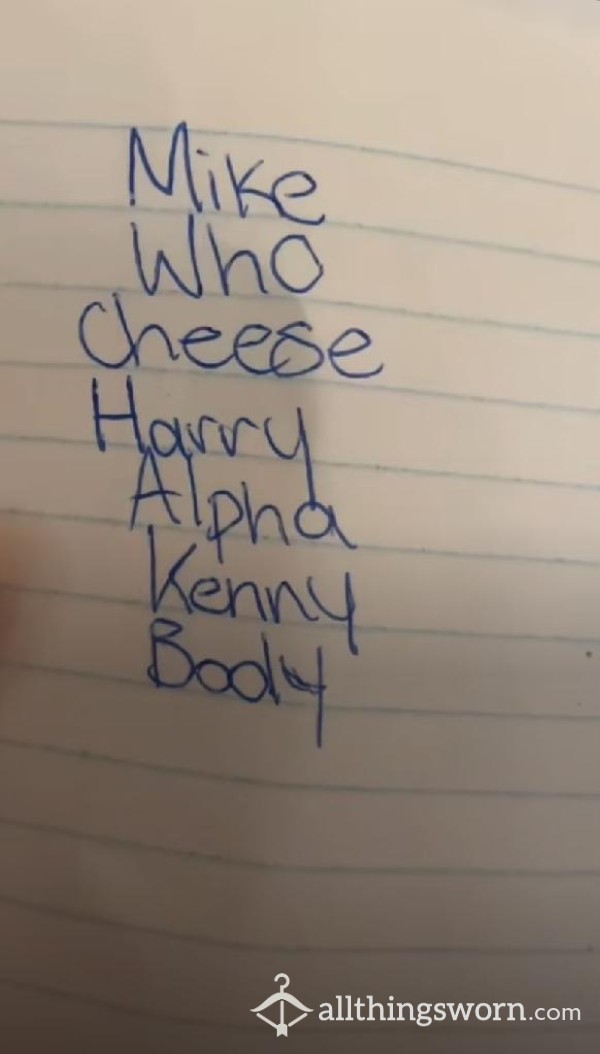 Mike
Who
Cheese
Harry
Alpha
Kenny
Body
allthingsworn.com